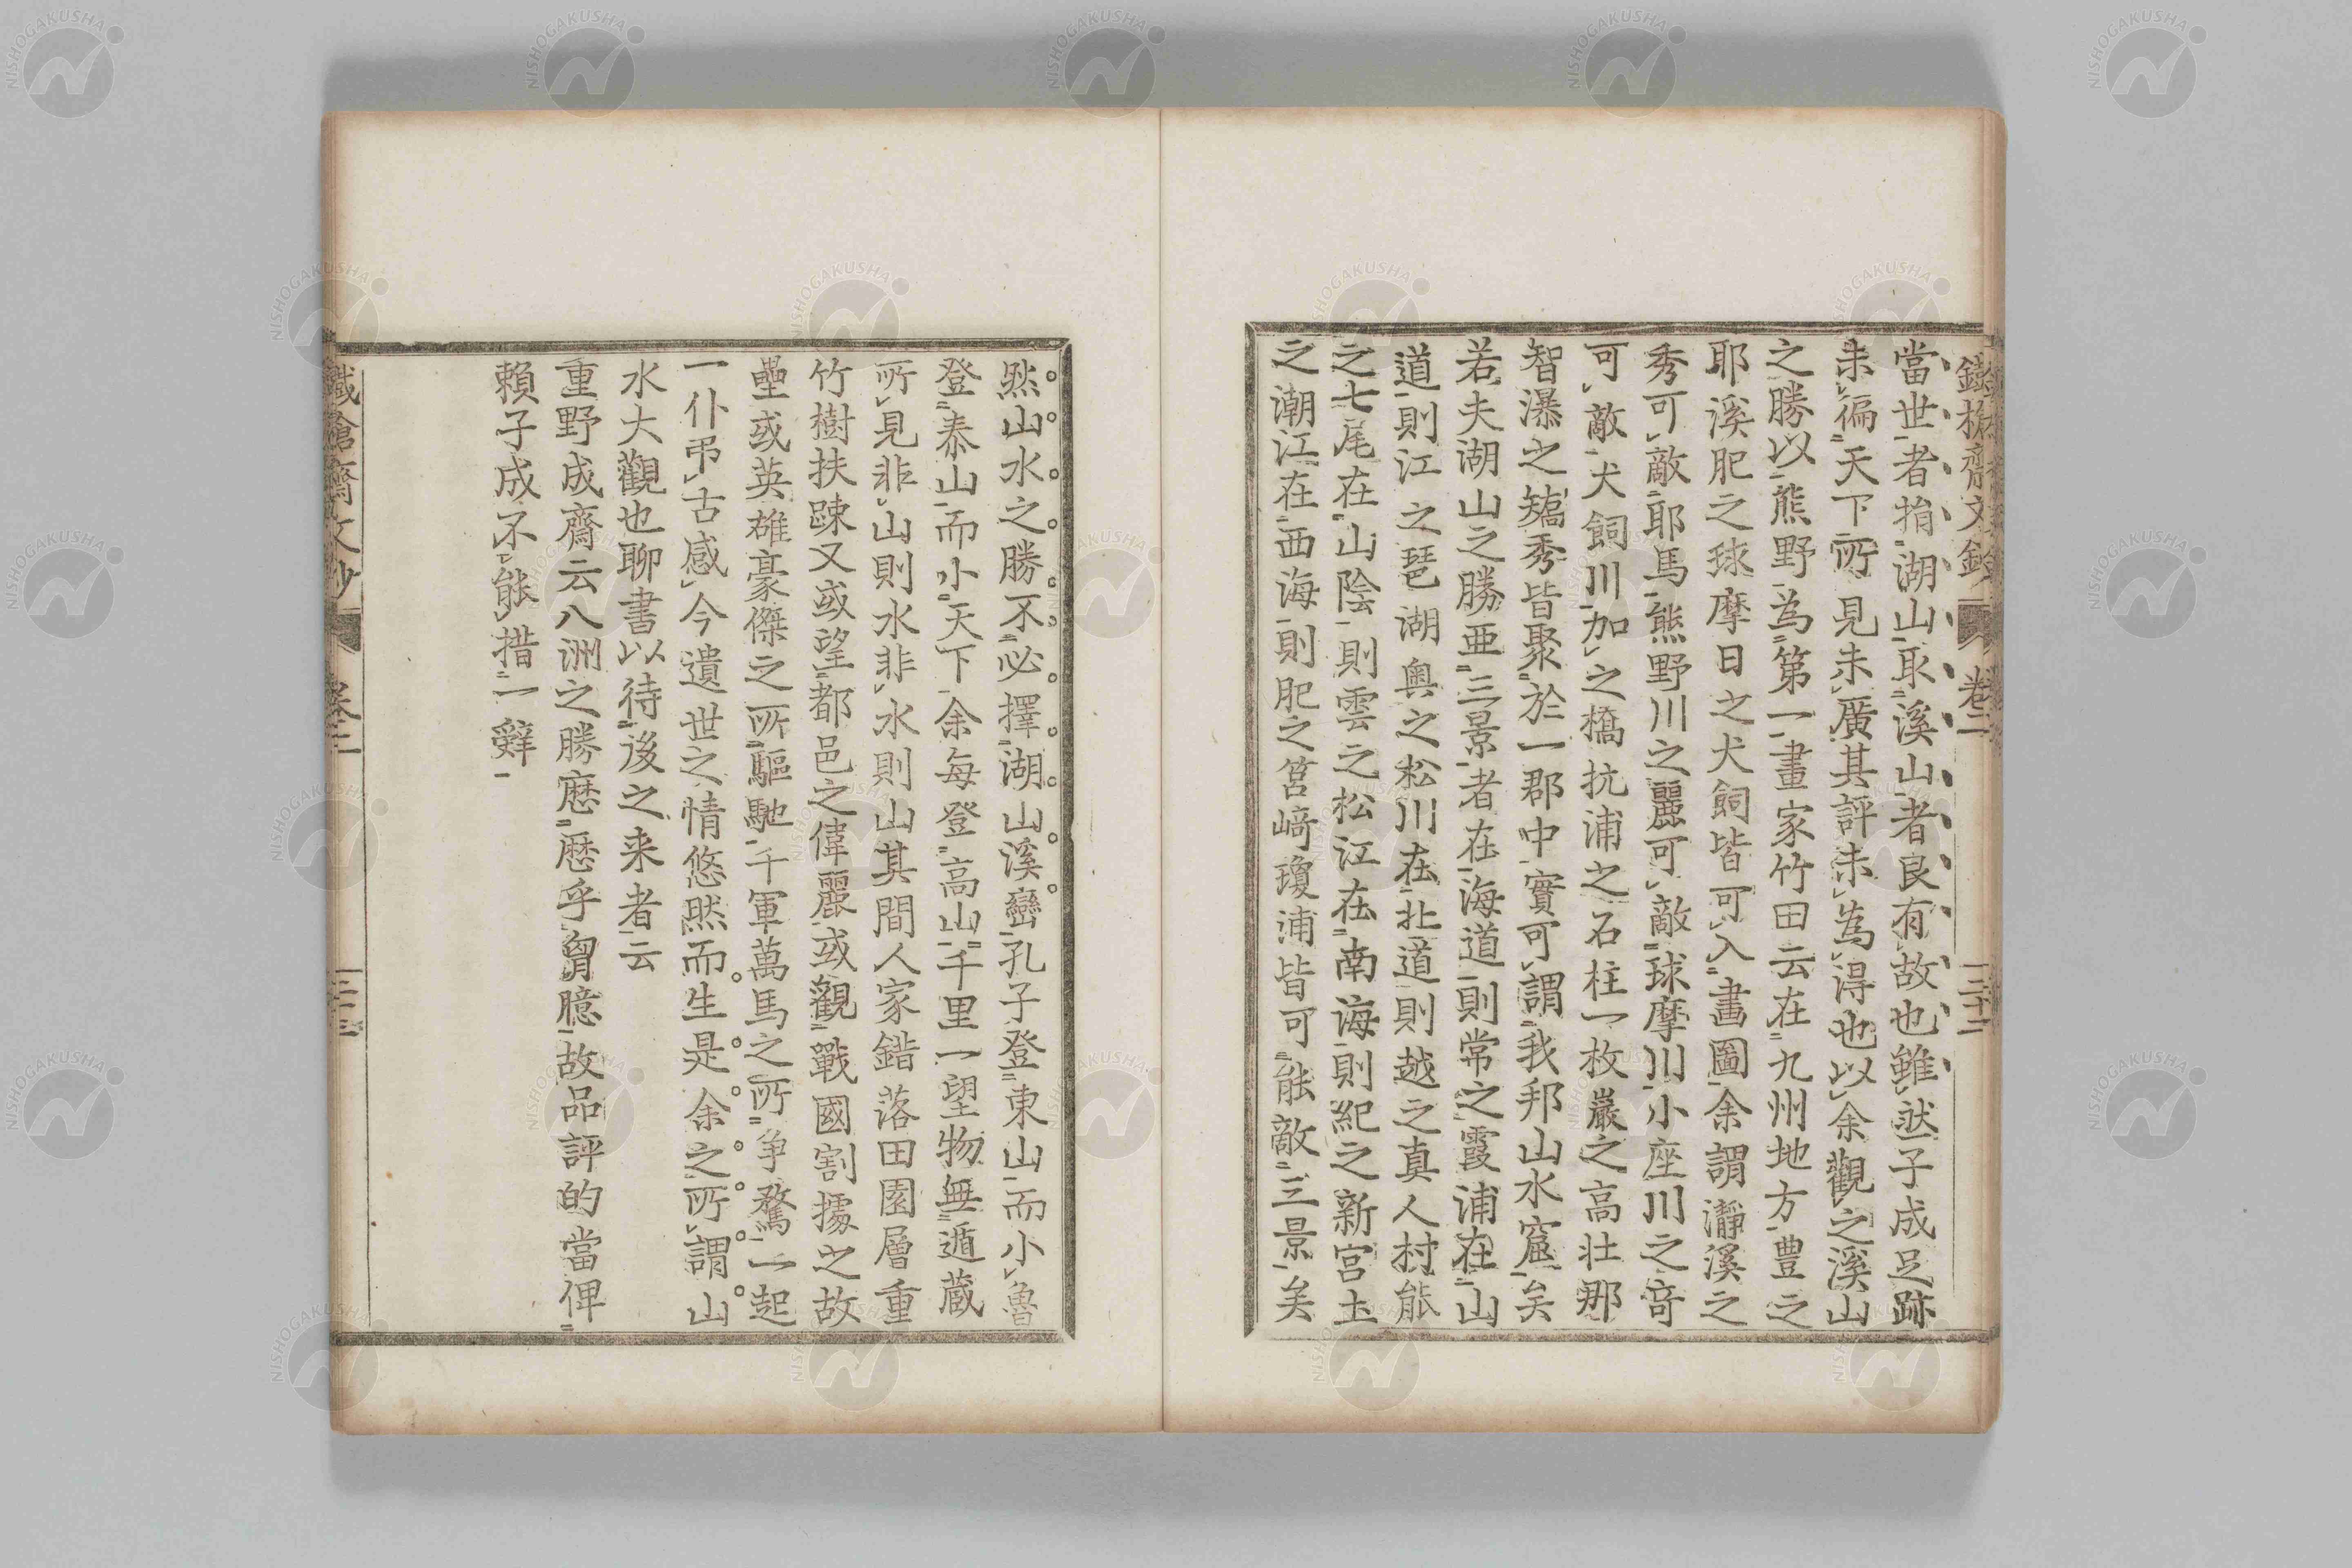 鐵槍齋文鈔 卷二 三十二
當世者捐湖山取溪山者良有故也雖然子成足跡
未徧天下所見未廣其評未為得也以余觀之溪山
之勝以熊野為第一畫家竹田云在九州地方豊之
耶溪肥之球摩日之犬飼皆可入畫圖余謂瀞溪之
秀可敵耶馬熊野川之麗可敵球摩川小座川之奇
可敵犬飼川加之橋抗浦之石柱一枚巖之高壯那
智瀑之矯秀皆聚於一郡中實可謂我邦山水窟矣
若夫湖山之勝亜三景者在海道則常之霞浦在山
道則江之琵湖奥之松川在北道則越之真人村能
之七尾在山陰則雲之松江在南海則紀之新宮土
之潮江在西海則肥之筥﨑瓊浦皆可能敵三景矣
然山水之勝不必擇湖山溪巒孔子登東山而小魯
登泰山而小天下余每登高山千里一望物無遁蔵
所見非山則水非水則山其間人家錯落田園層重
竹樹扶疎又或望都邑之偉麗或觀戰國割據之故
壘或英雄豪傑之所驅馳千軍萬馬之所爭騖一起
一仆弔古感今遺世之情悠然而生是余之所謂山
水大觀也聊書以待後之来者云
重野成齋云八洲之勝歴歴乎胷臆故品評的當俾
賴子成不能措一辭
鐵槍齋文鈔 卷二